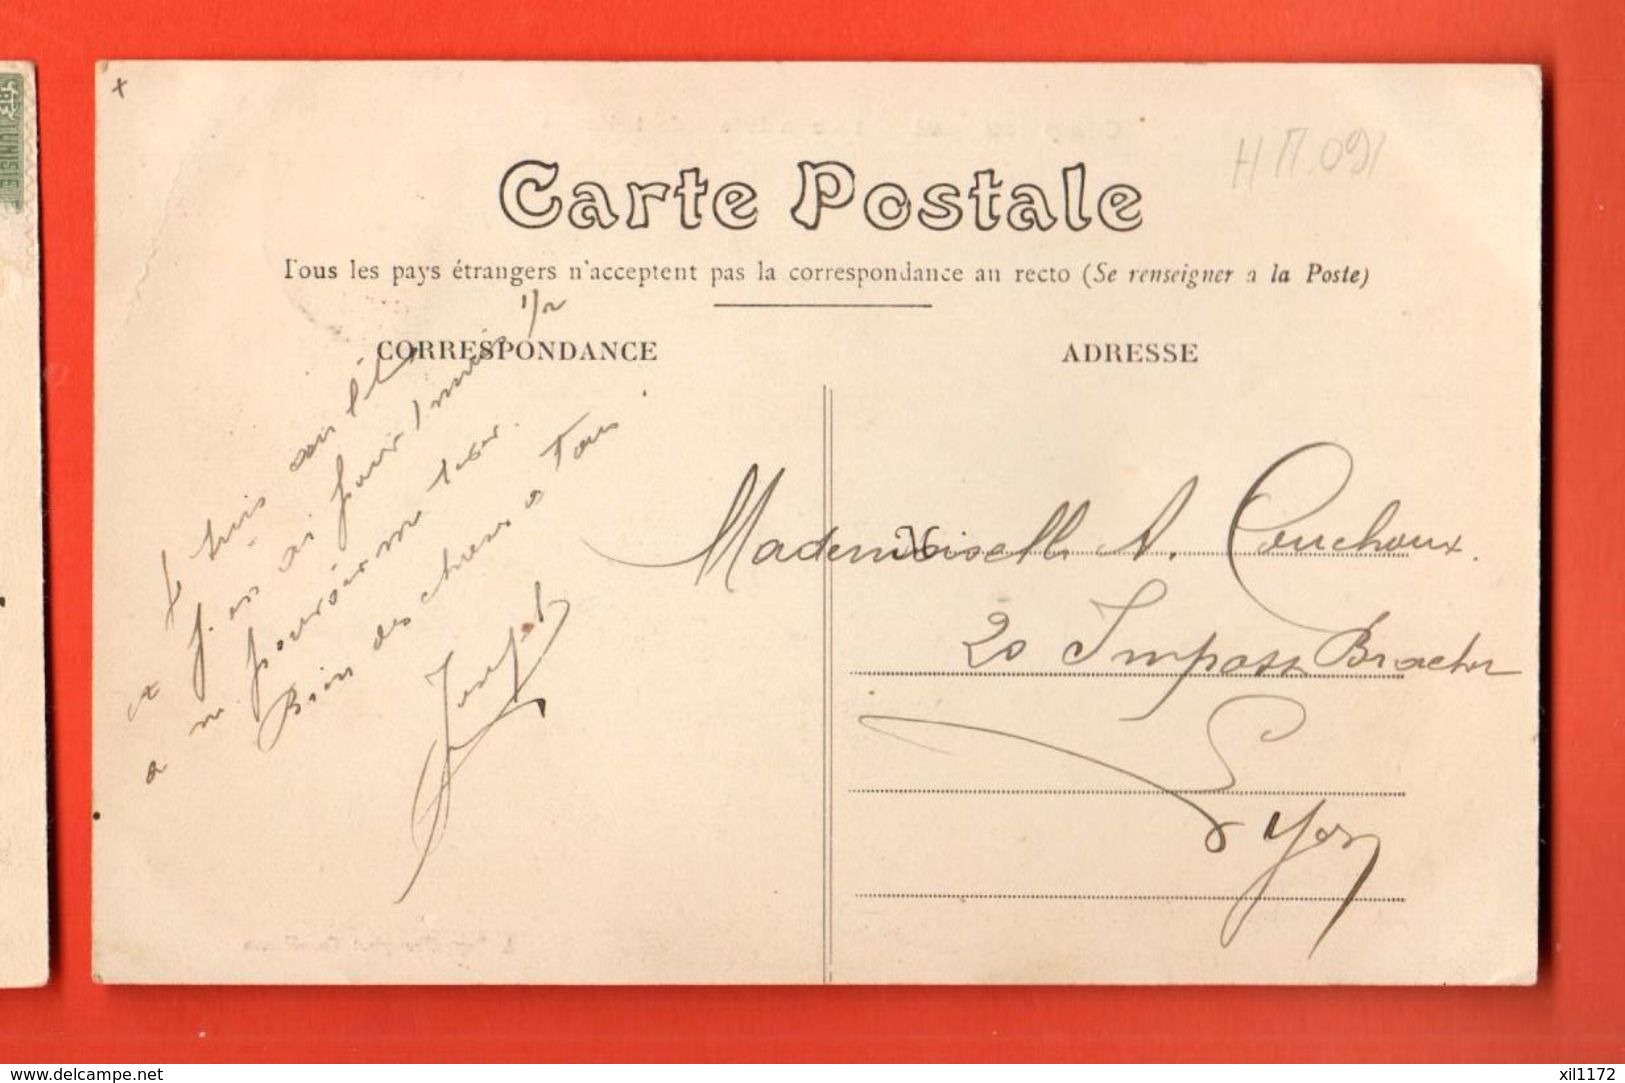 TUNISIE
H M.091
Carte Postale
Tous les pays étrangers n'acceptent pas la correspondance au recto (Se renseigner a la Poste)
CORRESPONDANCE
ADRESSE
Je suis au lit
et j'en ai pour 1 mois 1/2
a ne pouvoir me lever.
Bien des choses a Tous.
Joseph
Mademoiselle A. Couchoux.
20 Impasse
Lyon
www.delcampe.net
xil1172